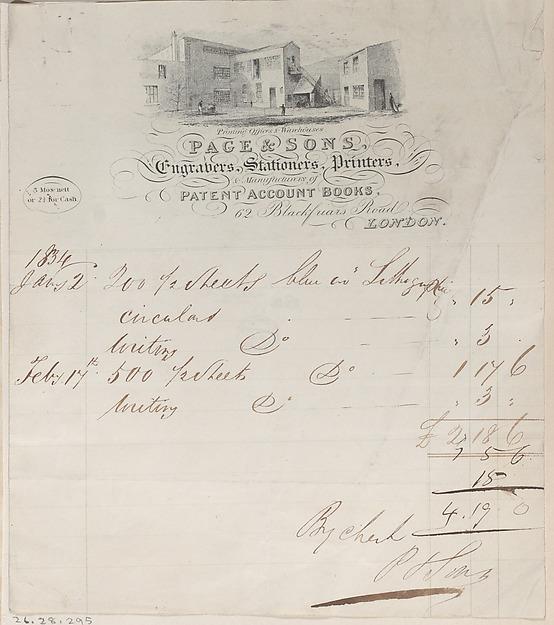 Printing Offices & Warehouses
PAGE & SONS,
Engravers, Stationers, Printers,
& Manufacturers of
PATENT ACCOUNT BOOKS,
62 Blackfriars Road
LONDON.
3 Mos. nett
or 2½ for Cash
1834
Jany 2 200 ½ sheets blue Lithographic
circulars " 15 "
Writing Do " 3 "
Feby 17th 500 ½ sheets Do 1 17 6
Writing Do " 3 "
£ 2 18 6
5 6
15
4.19 0
By check
P & Sons
26.28.295